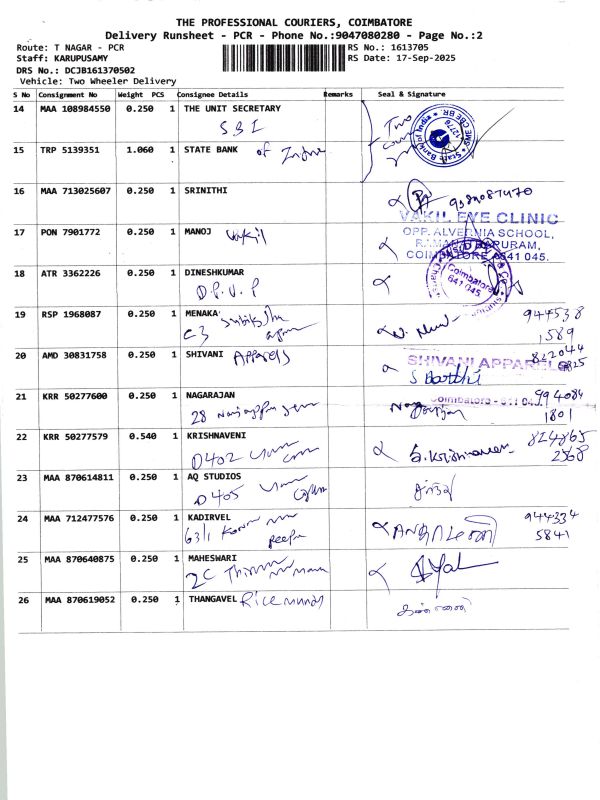 THE PROFESSIONAL COURIERS, COIMBATORE
Delivery Runsheet - PCR - Phone No.:9047080280 - Page No.:2
Route: T NAGAR - PCR RS No.: 1613705
Staff: KARUPUSAMY RS Date: 17-Sep-2025
DRS No.: DCJB161370502
Vehicle: Two Wheeler Delivery
S No Consignment No Weight PCS Consignee Details Remarks Seal & Signature
14 MAA 108984550 0.250 1 THE UNIT SECRETARY
SBI Two
15 TRP 5139351 1.060 1 STATE BANK of
16 MAA 713025607 0.250 1 SRINITHI
VAKIL EYE CLINIC
17 PON 7901772 0.250 1 MANOJ Vakil OPP. ALVERNIA SCHOOL,
COIMBATORE 641 045.
18 ATR 3362226 0.250 1 DINESHKUMAR
D.P.V.P Coimbatore
641 045
19 RSP 1968087 0.250 1 MENAKA 944538
C3 1589
20 AMD 30831758 0.250 1 SHIVANI Apparels SHIVANI APPARELS 822044
21 KRR 50277600 0.250 1 NAGARAJAN Coimbatore - 641 045 994084
28 1801
22 KRR 50277579 0.540 1 KRISHNAVENI 824865
D402 2568
23 MAA 870614811 0.250 1 AQ STUDIOS
D405
24 MAA 712477576 0.250 1 KADIRVEL 944334
63/1 5841
25 MAA 870640875 0.250 1 MAHESWARI
2C
26 MAA 870619052 0.250 1 THANGAVEL Rice